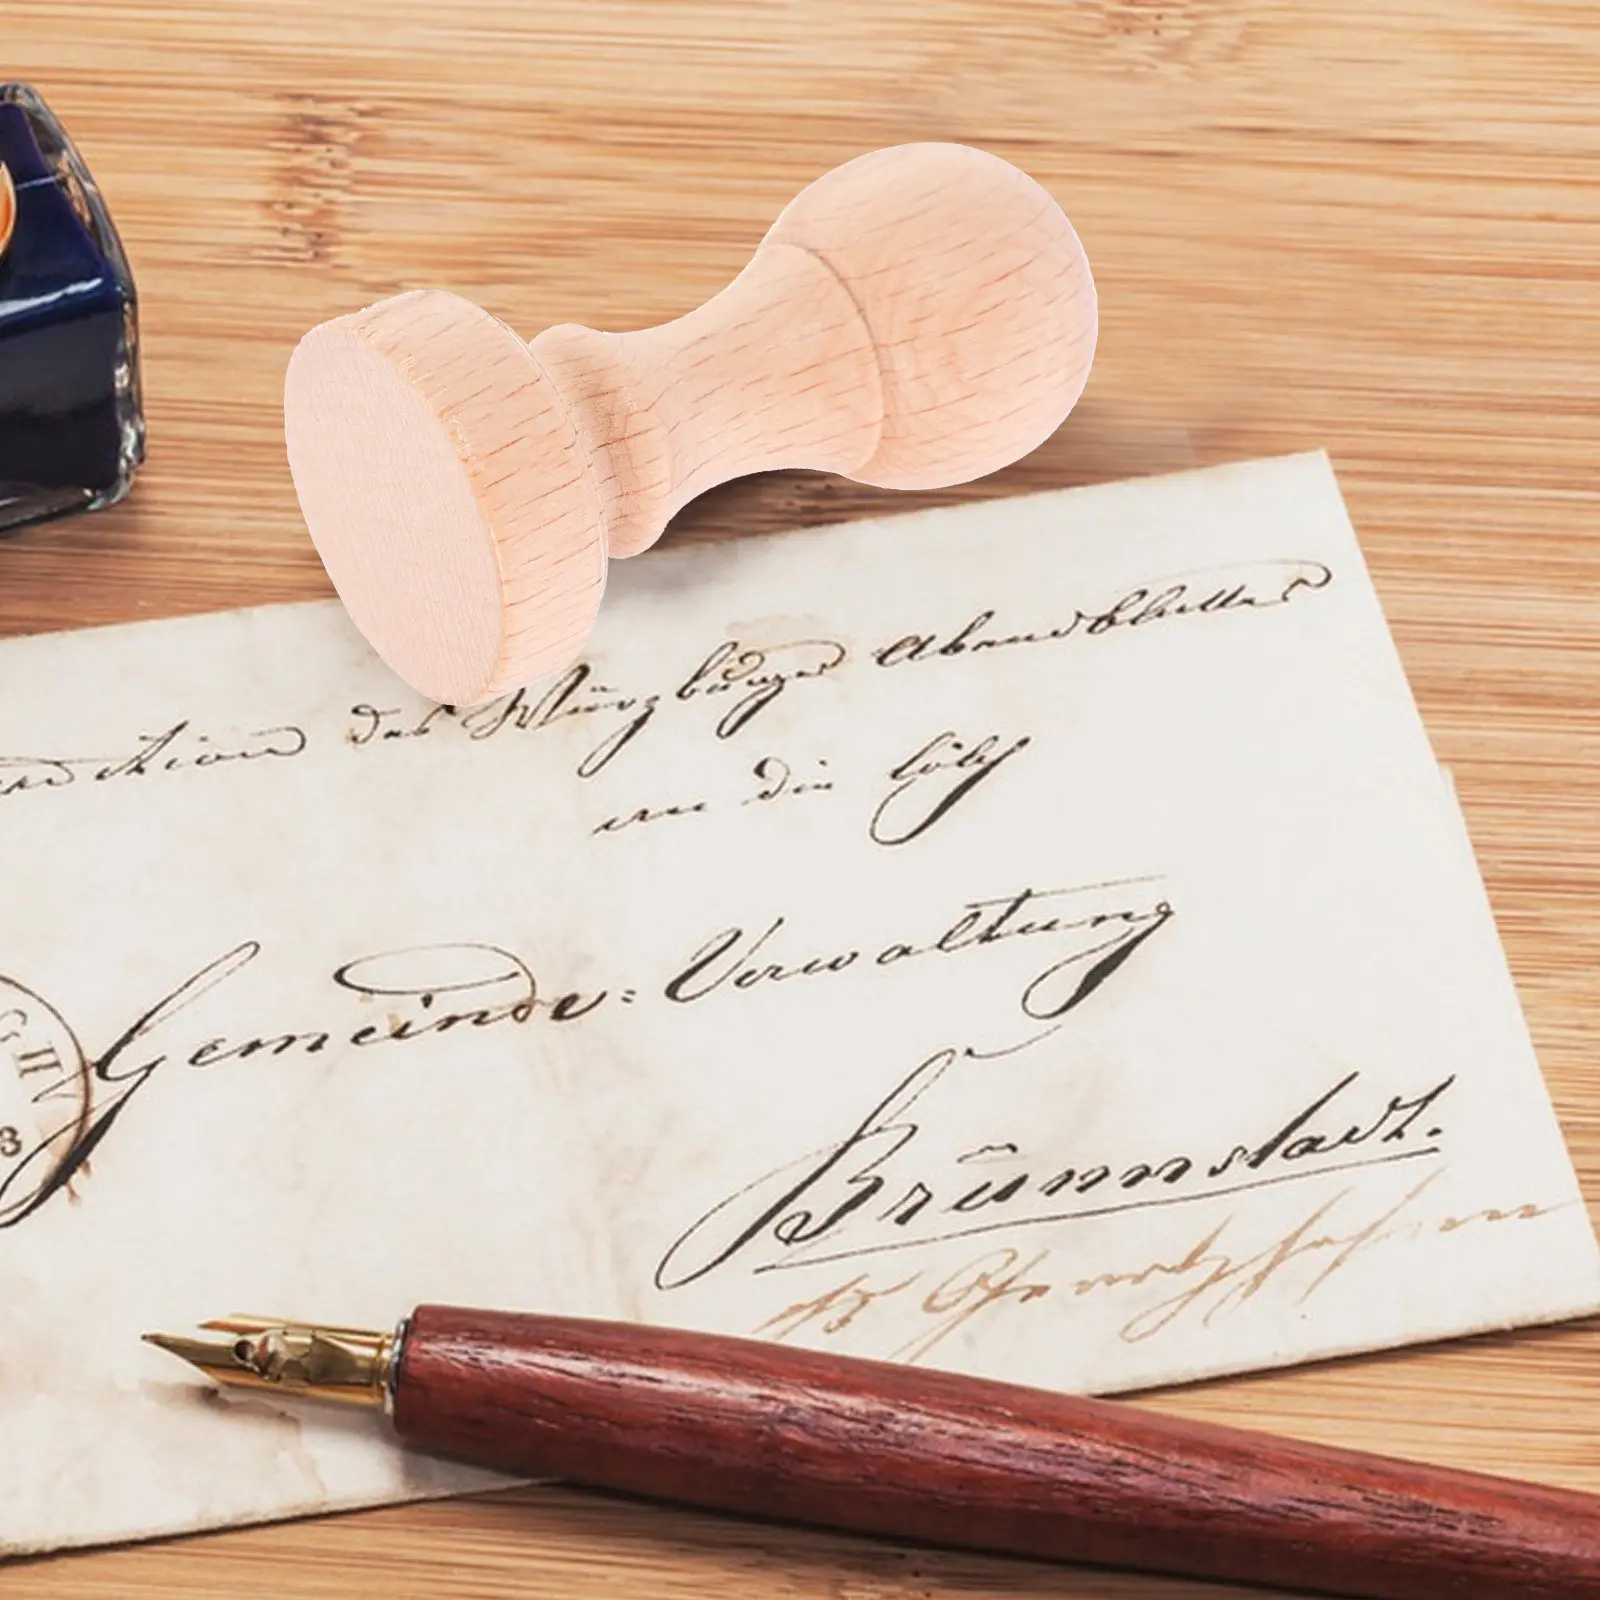 des Würzburger Abendblattes
an die Löbl
Gemeinde=Verwaltung
Brünnstadt.
3